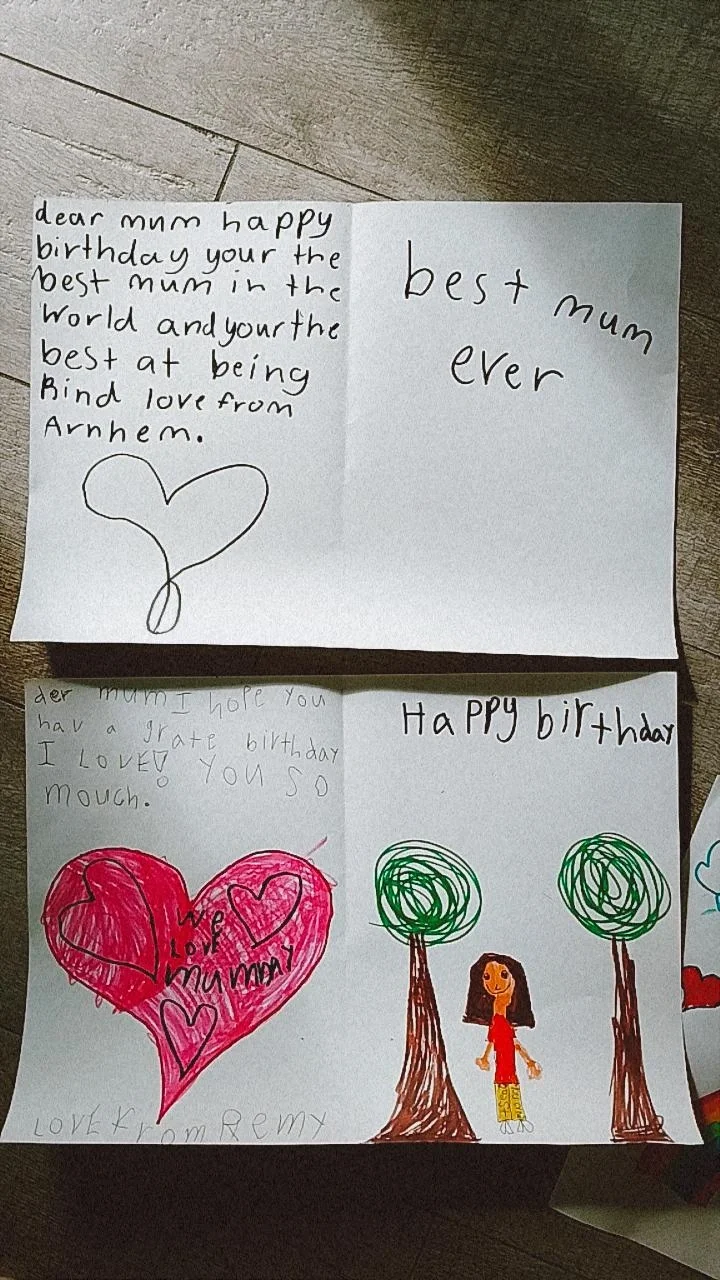 dear mum happy
birthday your the
best mum in the
world and your the
best at being
Kind love from
Arnhem.
best mum
ever
der mum I hope you
hav a grate birthday
I LOVE! YOU SO
mouch.
we
LOVE
mummy
LOVE From Remy
Happy birthday